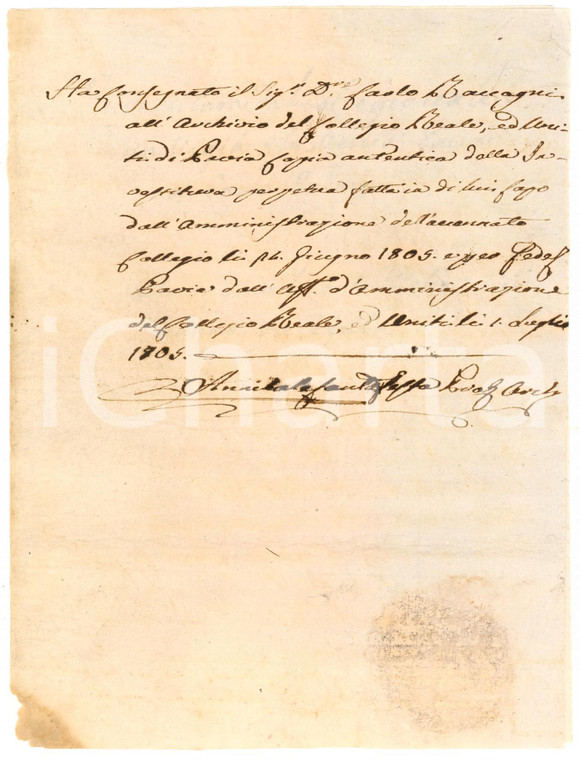 Ha Consegnato il Sig.r D.re Paolo Baccagni
all'Archivio del Collegio Reale, ed Uni-
ti di Pavia Copia autentica della In-
vestitura perpetua fatta in di lui capo
dall'Amministrazione dell'accennato
Collegio li 14. Giugno 1805. e per fede
Pavia dall'Uff.o d'Amministrazione
del Collegio Reale, ed Uniti li 1. Luglio
1805.
Annibale
iCharta